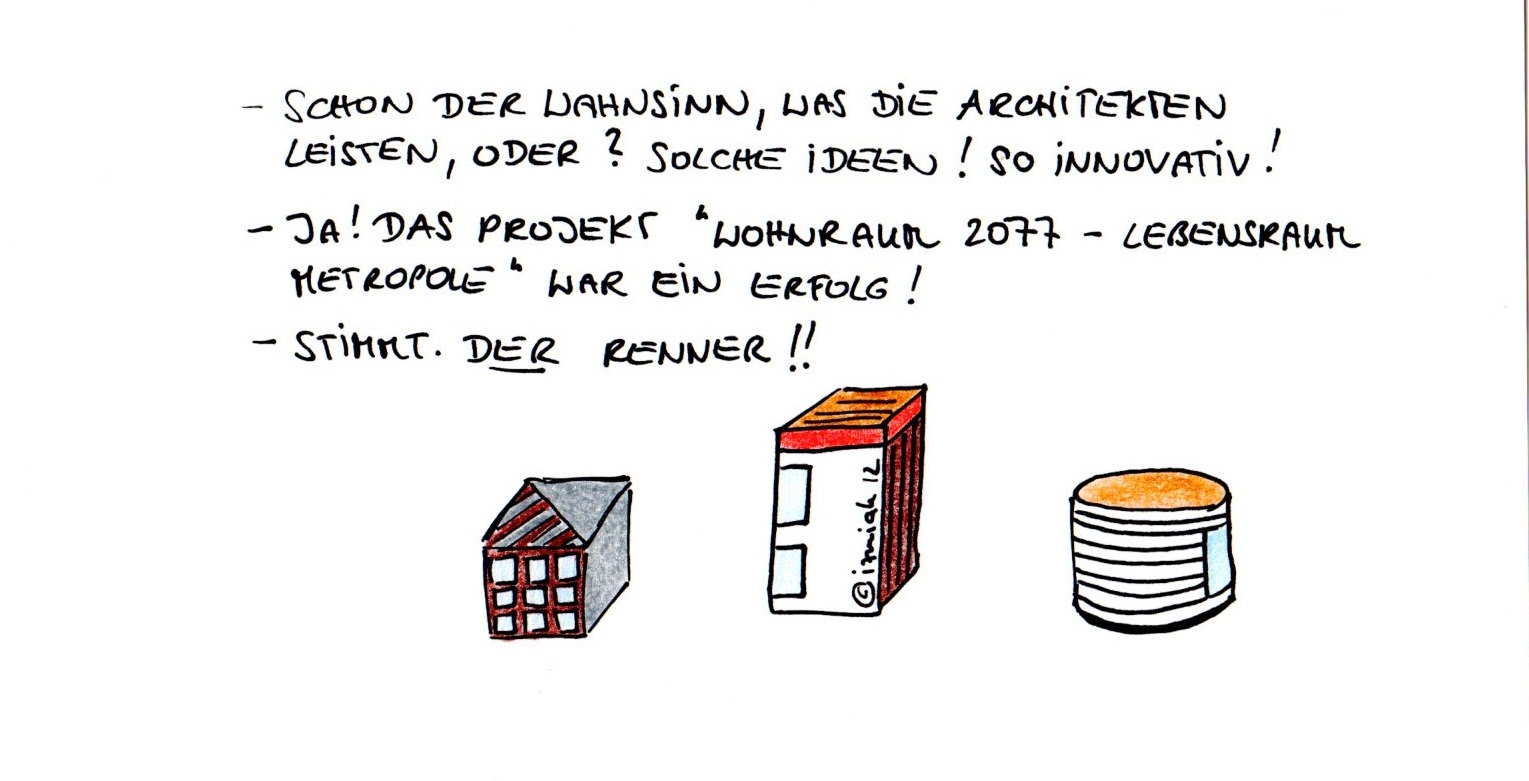 - SCHON DER WAHNSINN, WAS DIE ARCHITEKTEN
LEISTEN, ODER? SOLCHE IDEEN! SO INNOVATIV!
- JA! DAS PROJEKT "WOHNRAUM 2077 - LEBENSRAUM
METROPOLE" WAR EIN ERFOLG!
- STIMMT. DER RENNER!!
© izmiah 12